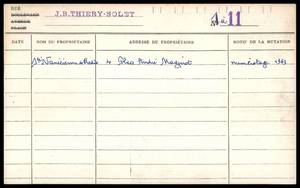 RUE
BOULEVARD
AVENUE
PLACE
J.B.THIERY-SOLET
1 à 11
DATE NOM DU PROPRIÉTAIRE ADRESSE DU PROPRIÉTAIRE MOTIF DE LA MUTATION
Sté Nancéienne 4 Place André Maginot numérotage 1963